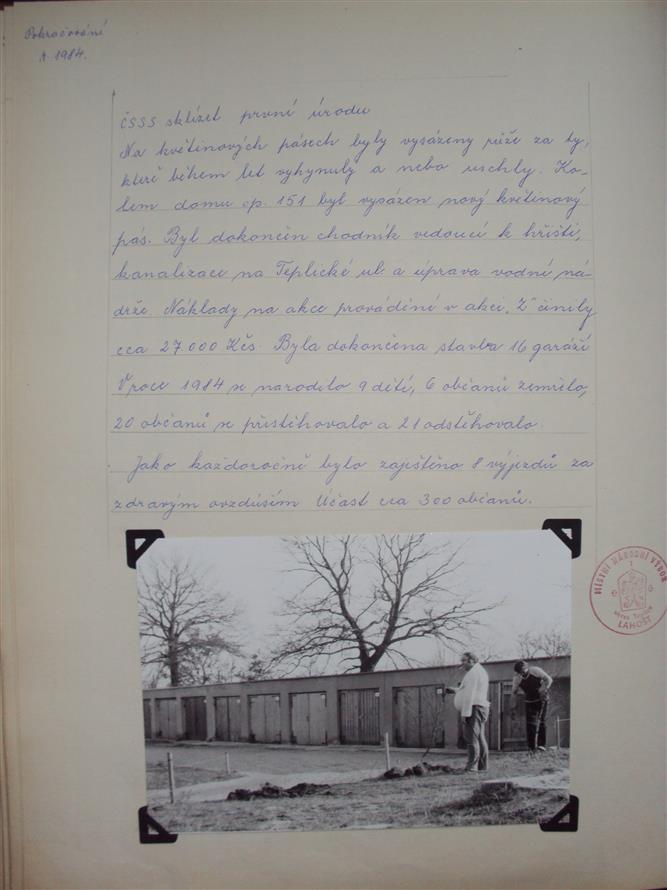 Pokračování
r. 1984.
ČSSS sklízet první úrodu
Na květinových pásech byly vysázeny růže za ty,
které během let vyhynuly a nebo uschly. Ko-
lem domu čp. 151 byl vysázen nový květinový
pás. Byl dokončen chodník vedoucí k hřišti,
kanalizace na Teplické ul. a úprava vodní ná-
drže. Náklady na akce prováděné v akci „Z" činily
cca 27.000 Kčs. Byla dokončena stavba 16 garáží
V roce 1984 se narodilo 9 dětí, 6 občanů zemřelo,
20 občanů se přistěhovalo a 21 odstěhovalo.
Jako každoročně bylo zajištěno 8 výjezdů za
zdravým ovzduším Účast cca 300 občanů.
MÍSTNÍ NÁRODNÍ VÝBOR
1
okres Teplice
LAHOŠŤ